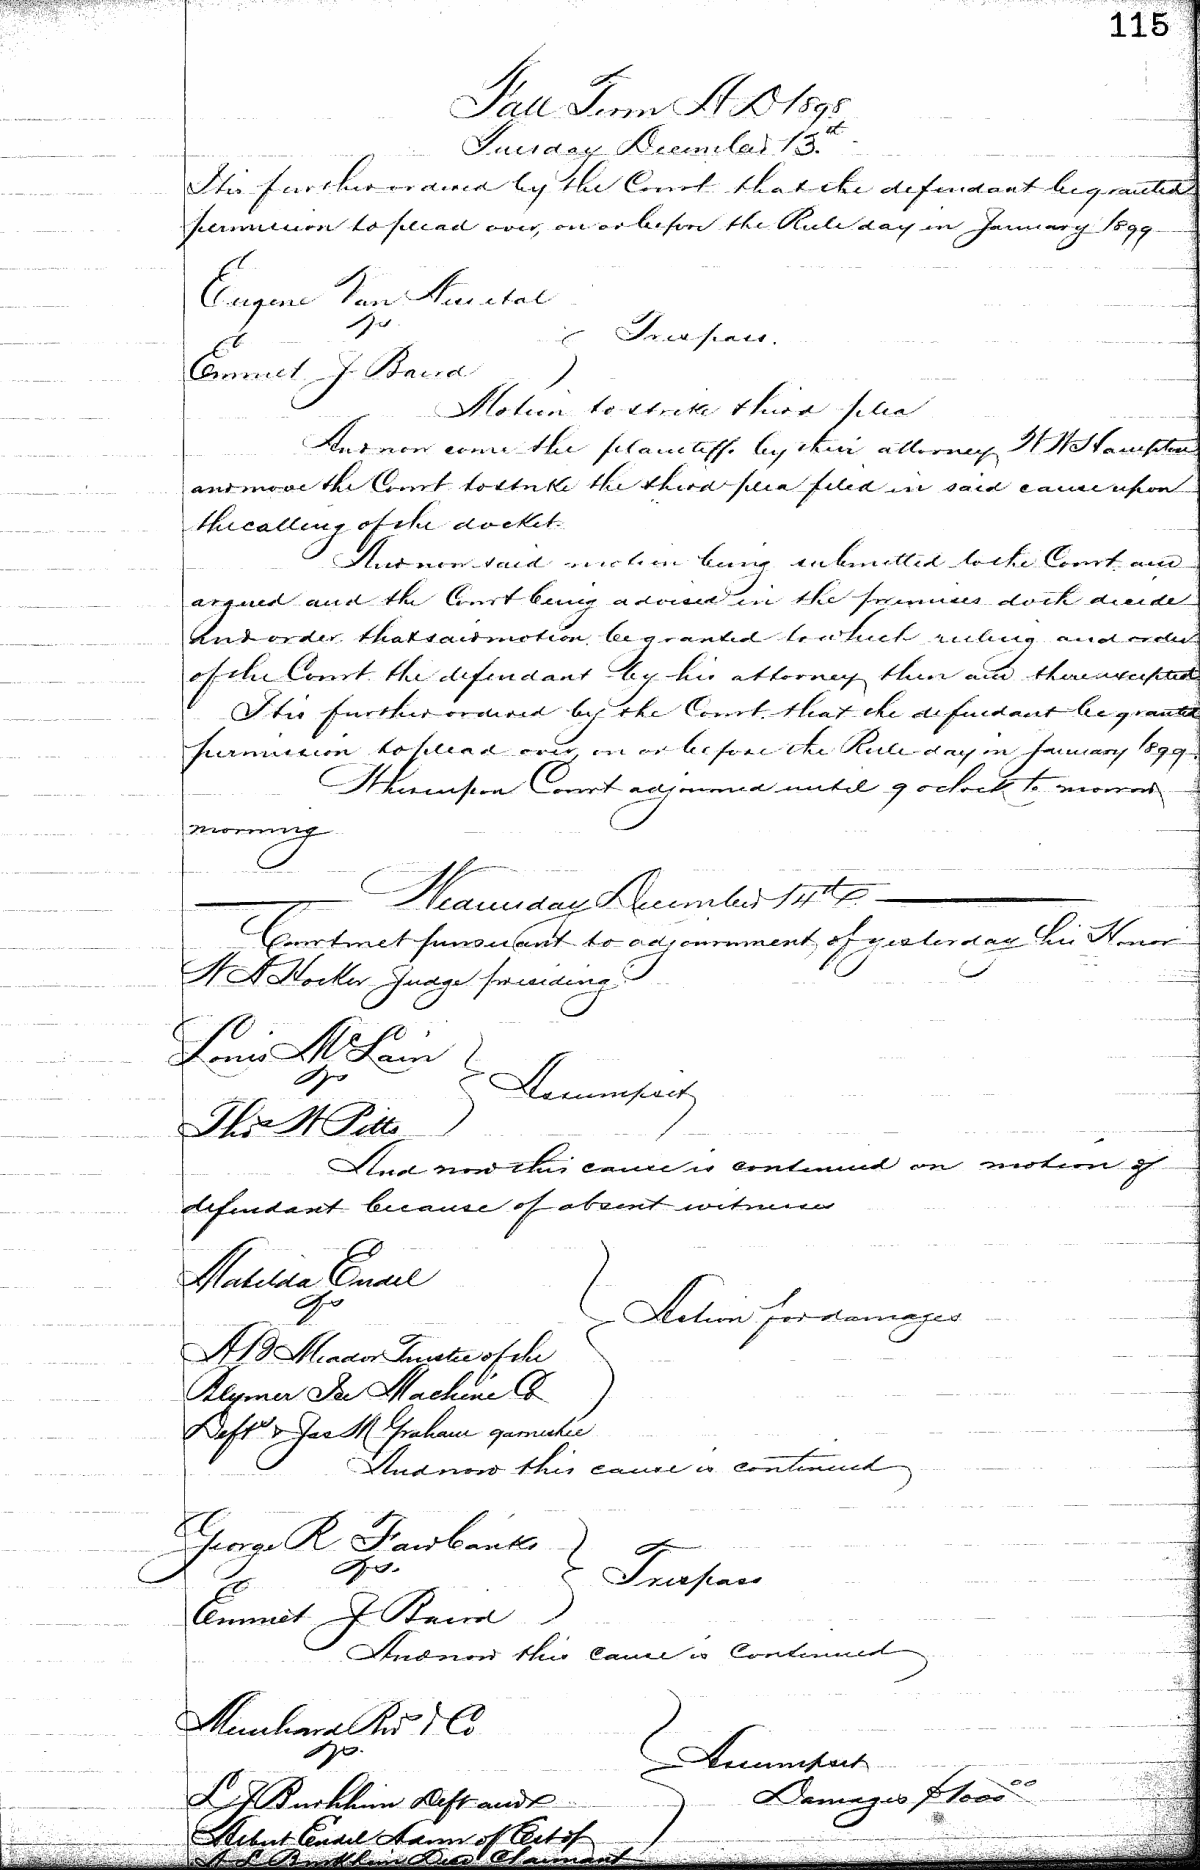 115
Fall Term A D 1898
Tuesday December 13th
It is further ordered by the Court that the defendant be granted
permission to plead over, on or before the Rule day in January 1899
Eugene Van
vs
Trespass.
Emmet J Baird
Motion to strike third plea
And now come the plaintiff by their attorney W W Hampton
and move the Court to strike the third plea filed in said cause upon
the calling of the docket.
And now said motion being submitted to the Court and
argued and the Court being advised in the premises doth decide
and order that said motion be granted to which ruling and order
of the Court the defendant by his attorney then and there excepted
It is further ordered by the Court that the defendant be granted
permission to plead over, on or before the Rule day in January 1899.
Whereupon Court adjourned until 9 oclock to morrow
morning
Wednesday December 14th
Court met pursuant to adjournment of yesterday his Honor
W A Hocker Judge presiding
Louis McLain
vs
Assumpsit
Thos W Pitts
And now this cause is continued on motion of
defendant because of absent witnesses
Matilda Endel
vs
Action for damages
A B Meador Trustee of the
Blymer Ice Machine Co
Deft & Jas M Graham garnishee
And now this cause is continued
George R Fairbanks
vs.
Trespass
Emmet J Baird
And now this cause is Continued
Meinhard Bro & Co
vs.
Assumpsit
L J Burkhim Deft and
Damages $1000 00
Endel Admr of Est of
A L Burkhim Decd Claimant